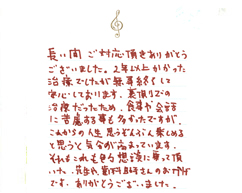 長い間 ご対応頂きありがとう
ございました。2年以上かかった
治療でしたが無事終了して
安心しております。裏側での
治療だったため、食事や会話
に苦慮する事も多かったですが、
これからの人生 思うぞんぶん楽しめる
と思うと気分が高まっています。
それもこれも 想い
いた、先生や歯科助手さんのおかげ
です。ありがとうございました。